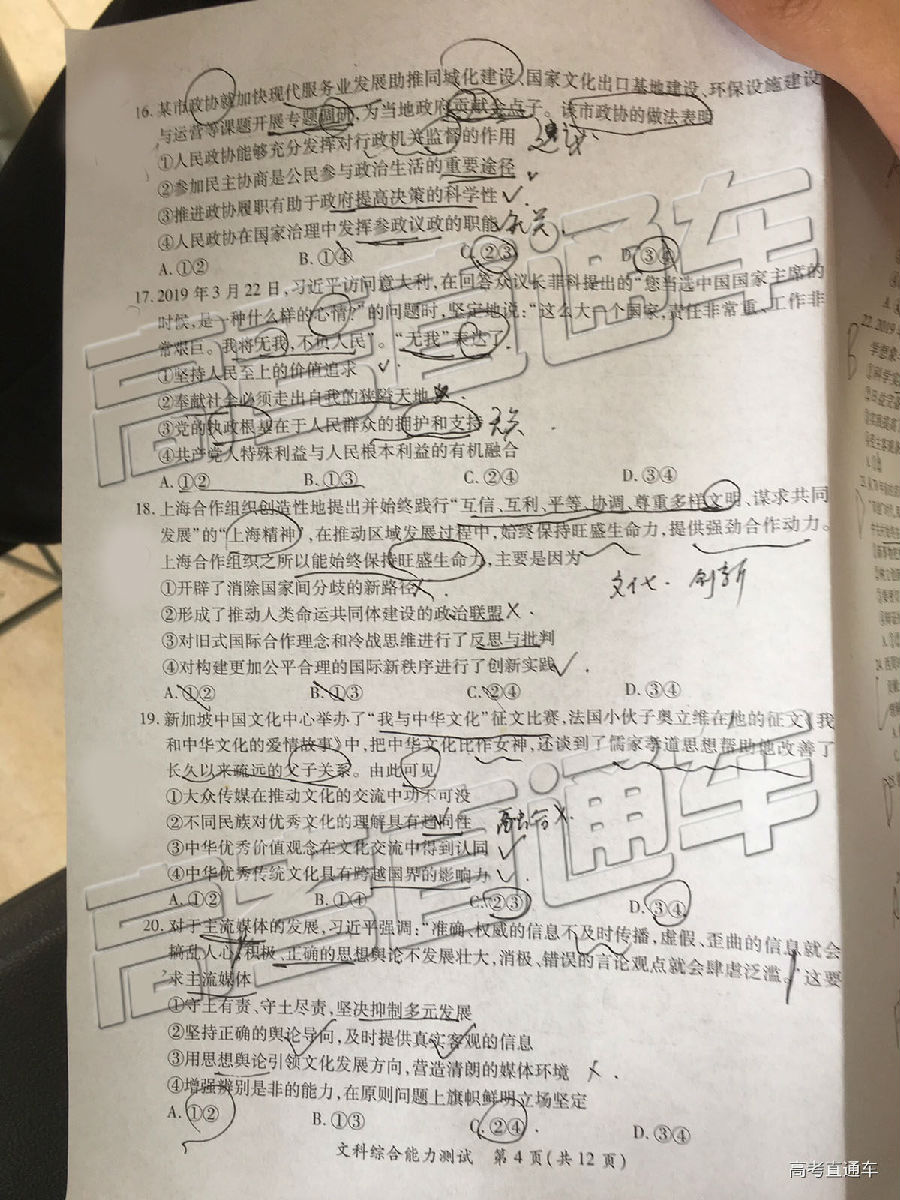 16. 某市政协就加快现代服务业发展助推同城化建设、国家文化出口基地建设、环保设施建设
与运营等课题开展专题调研,为当地政府贡献金点子。该市政协的做法表明
①人民政协能够充分发挥对行政机关监督的作用
②参加民主协商是公民参与政治生活的重要途径
③推进政协履职有助于政府提高决策的科学性
④人民政协在国家治理中发挥参政议政的职能 无关
A.①② B.①④ C.②③ D.③④
17. 2019年3月22日,习近平访问意大利,在回答众议长菲科提出的“您当选中国国家主席的
时候,是一种什么样的心情?”的问题时,坚定地说:“这么大一个国家,责任非常重、工作非
常艰巨。我将无我,不负人民”。“无我”表达了
①坚持人民至上的价值追求
②奉献社会必须走出自我的狭隘天地
③党的执政根基在于人民群众的拥护和支持 无关
④共产党人特殊利益与人民根本利益的有机融合
A.①② B.①③ C.②④ D.③④
18. 上海合作组织创造性地提出并始终践行“互信、互利、平等、协调、尊重多样文明、谋求共同
发展”的“上海精神”,在推动区域发展过程中,始终保持旺盛生命力,提供强劲合作动力。
上海合作组织之所以能始终保持旺盛生命力,主要是因为
文化 创新
①开辟了消除国家间分歧的新路径
②形成了推动人类命运共同体建设的政治联盟
③对旧式国际合作理念和冷战思维进行了反思与批判
④对构建更加公平合理的国际新秩序进行了创新实践
A.①② B.①③ C.②④ D.③④
19. 新加坡中国文化中心举办了“我与中华文化”征文比赛,法国小伙子奥立维在他的征文《我
和中华文化的爱情故事》中,把中华文化比作女神,还谈到了儒家孝道思想帮助他改善了
长久以来疏远的父子关系。由此可见
①大众传媒在推动文化的交流中功不可没
②不同民族对优秀文化的理解具有趋同性
③中华优秀价值观念在文化交流中得到认同
④中华优秀传统文化具有跨越国界的影响力
A.①② B.①④ C.②③ D.③④
20. 对于主流媒体的发展,习近平强调:“准确、权威的信息不及时传播,虚假、歪曲的信息就会
搞乱人心;积极、正确的思想舆论不发展壮大,消极、错误的言论观点就会肆虐泛滥。”这要
求主流媒体
①守土有责、守土尽责,坚决抑制多元发展
②坚持正确的舆论导向,及时提供真实客观的信息
③用思想舆论引领文化发展方向,营造清朗的媒体环境
④增强辨别是非的能力,在原则问题上旗帜鲜明立场坚定
A.①② B.①③ C.②④ D.③④
文科综合能力测试 第4页(共12页)
高考直通车
高考直通车
22. 2019
高考直通车